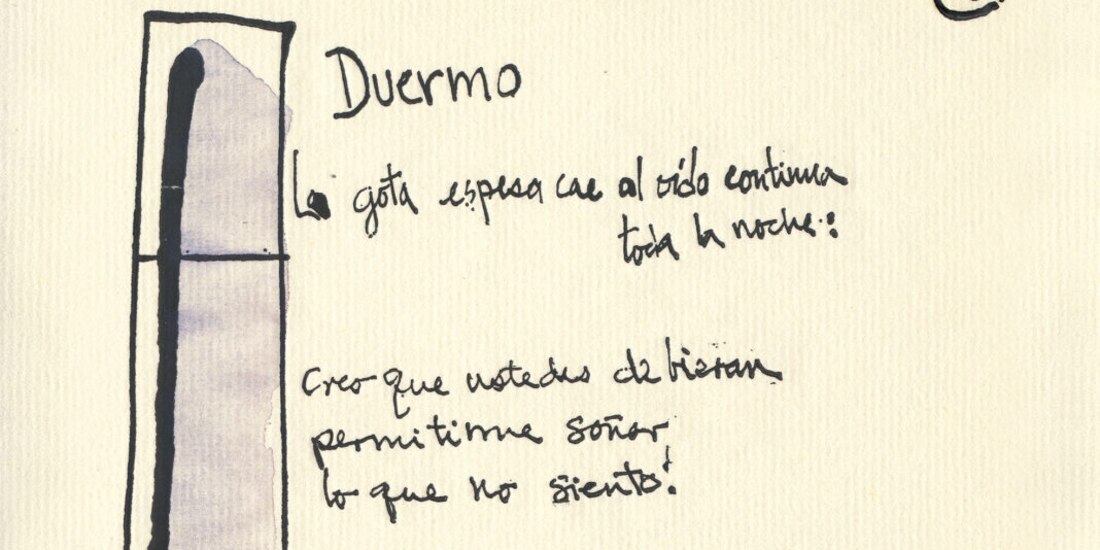 Duermo
La gota espesa cae al oído continua
toda la noche:
Creo que ustedes debieran
permitirme soñar
lo que no siento!